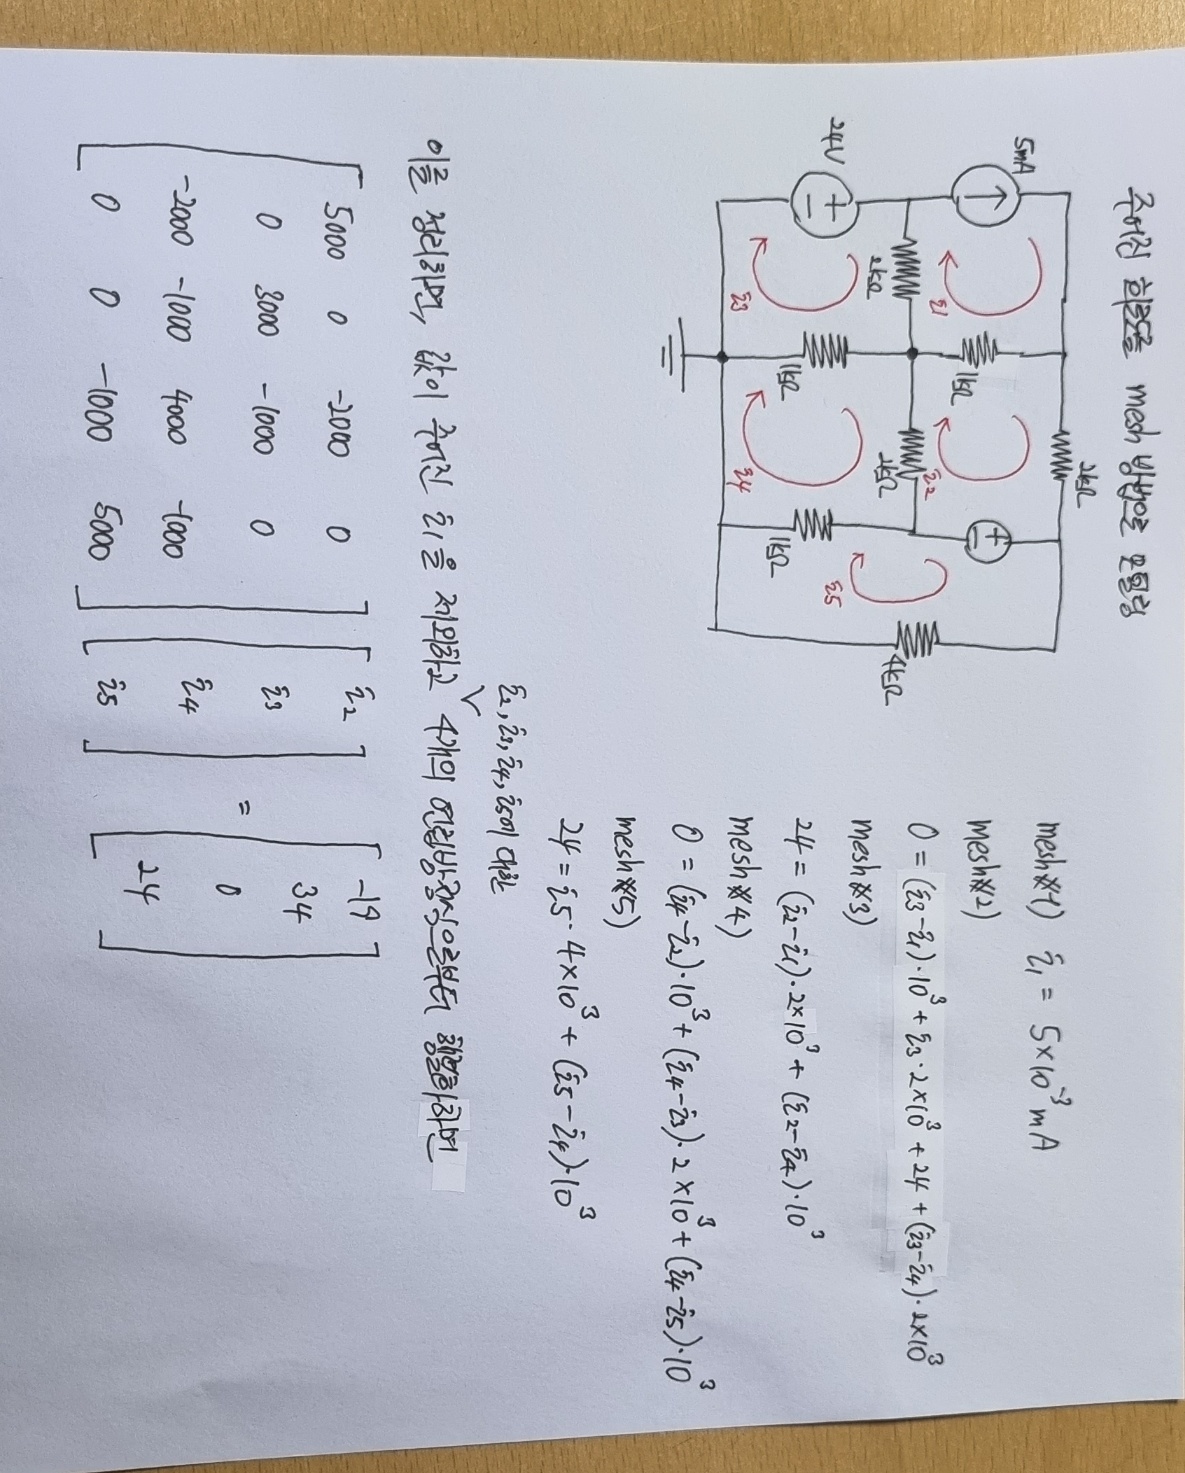 주어진 회로도를 mesh 방법으로 모델링
2kΩ
5mA
1kΩ
i1
i2
2kΩ
2kΩ
4kΩ
i5
24V
1kΩ
1kΩ
i3
i4
mesh※1) i₁ = 5×10⁻³mA
mesh※2)
0 = (i₃-i₁)·10³ + i₃·2×10³ + 24 + (i₃-i₄)·2×10³
mesh※3)
24 = (i₂-i₁)·2×10³ + (i₂-i₄)·10³
mesh※4)
0 = (i₄-i₂)·10³ + (i₄-i₃)·2×10³ + (i₄-i₅)·10³
mesh※5)
24 = i₅·4×10³ + (i₅-i₄)·10³
i₂, i₃, i₄, i₅에 대한
이를 정리하면, 값이 주어진 i₁을 제외하고 4개의 연립방정식으로부터 행렬화하면
5000 0 -2000 0 i₂ -19
0 3000 -1000 0 i₃ = 34
-2000 -1000 4000 -1000 i₄ 0
0 0 -1000 5000 i₅ 24